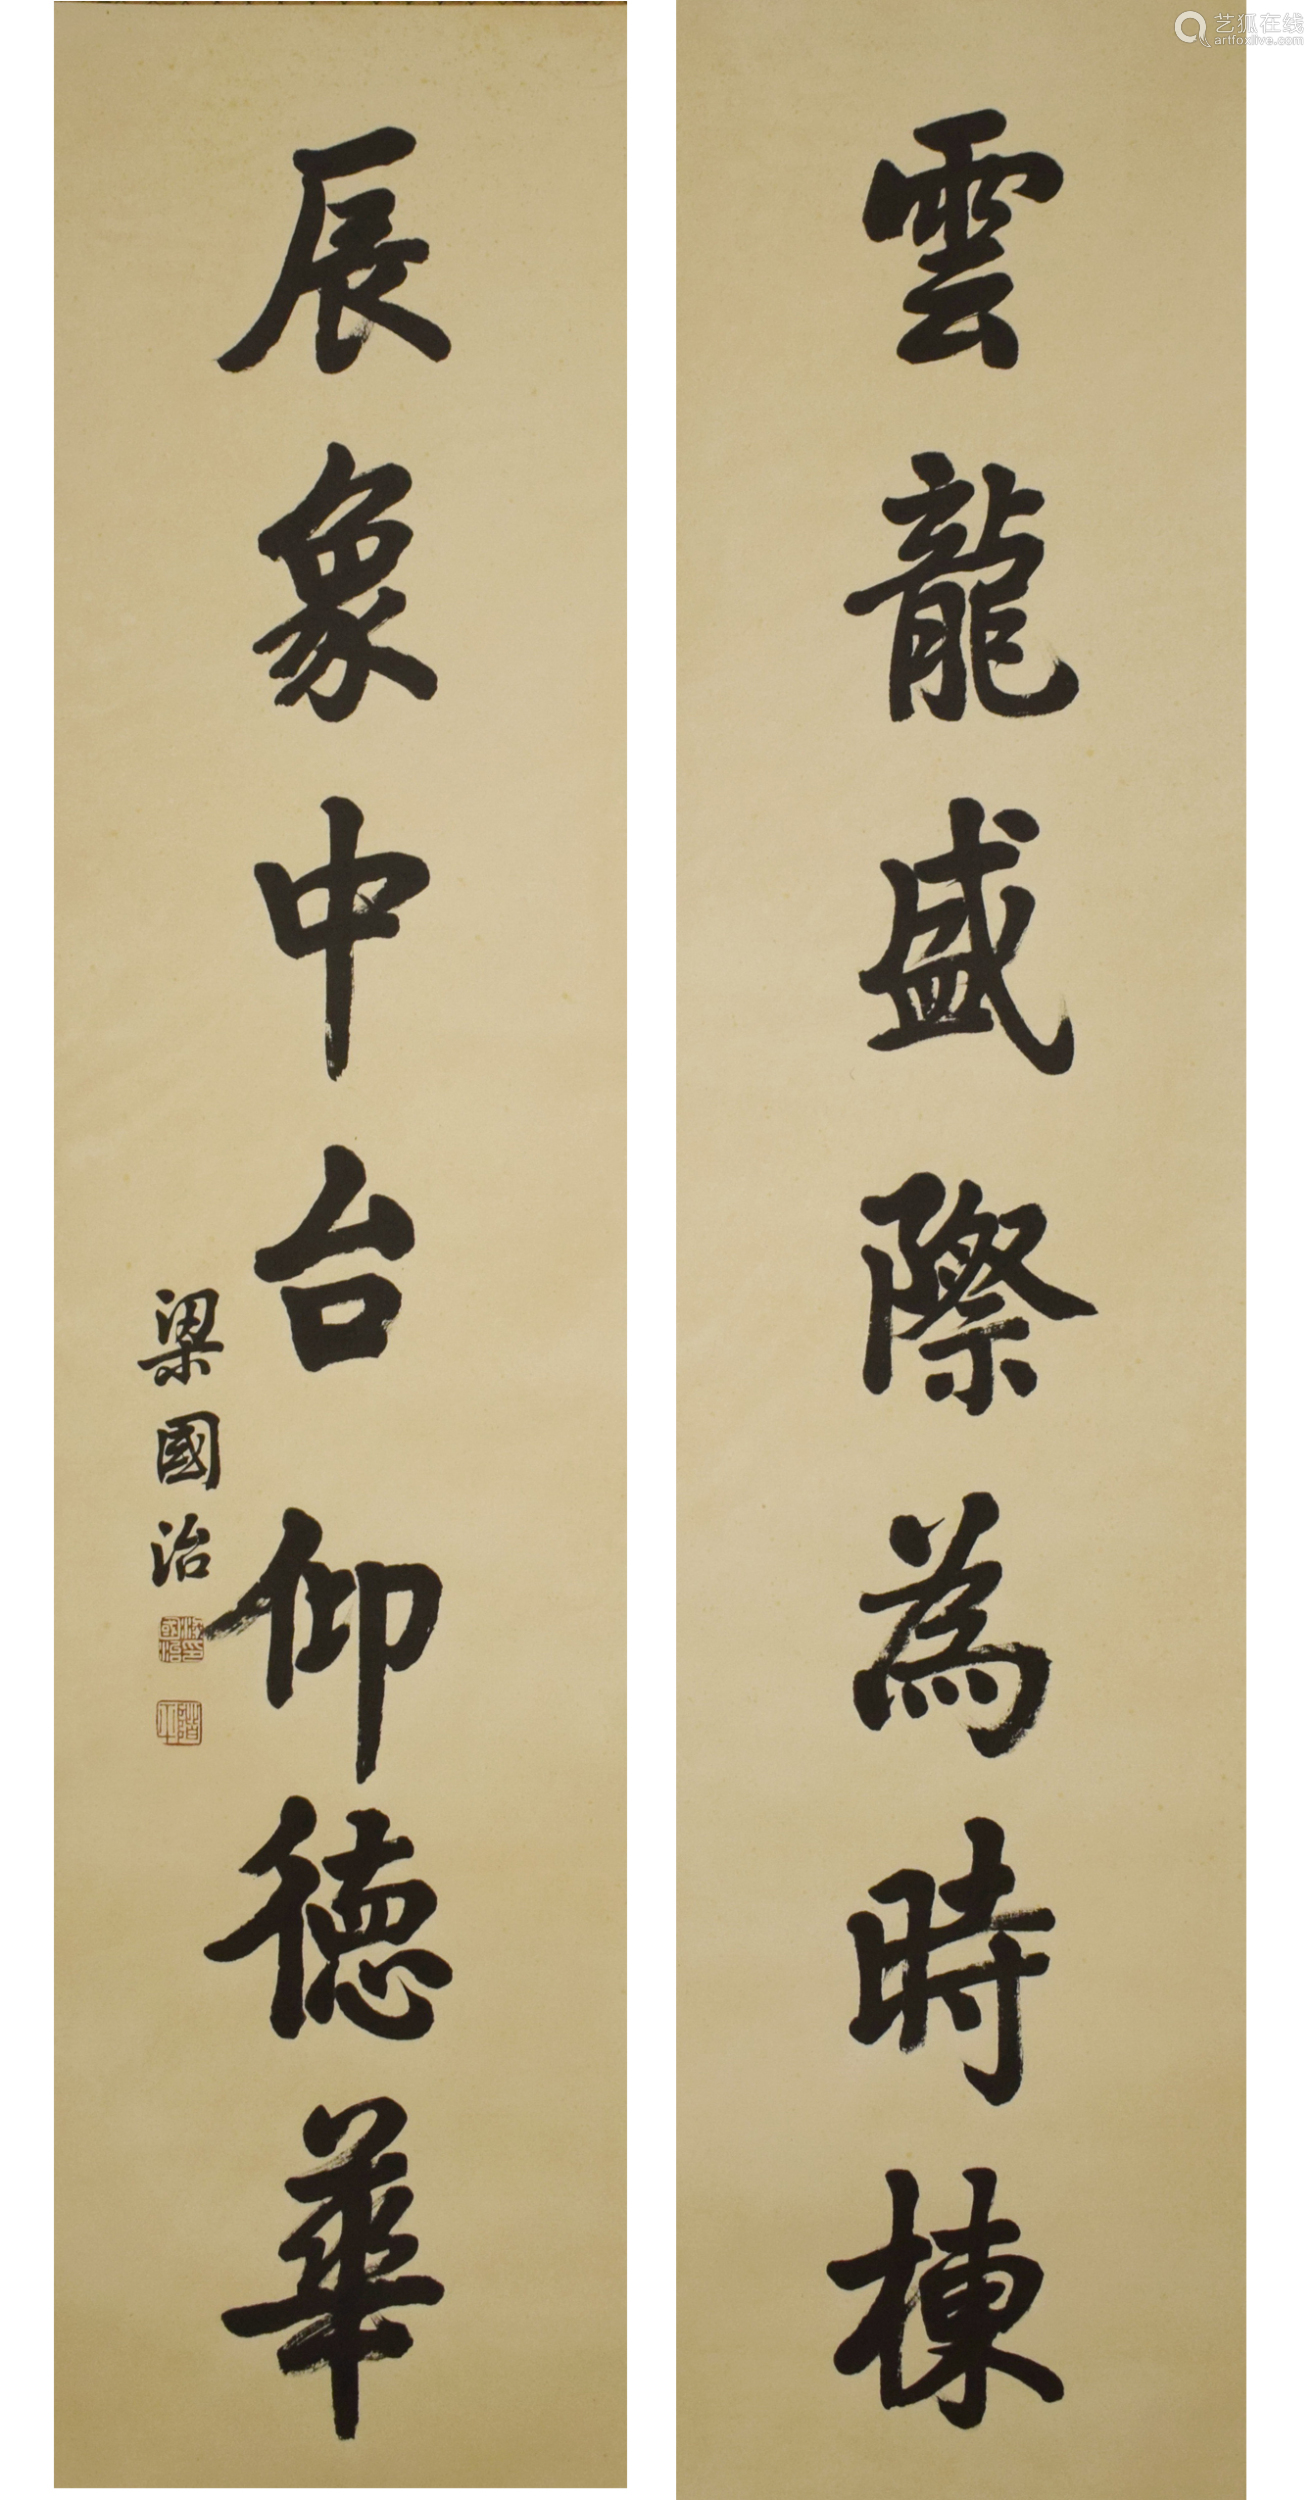 艺狐在线
artfoxlive.com
雲龍盛際為時棟
辰象中台仰德華
梁國治